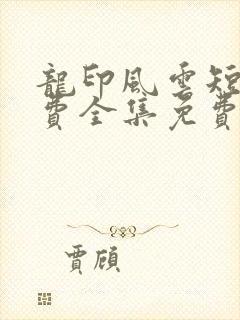 龍印風雲短
費全集免費
賈頎